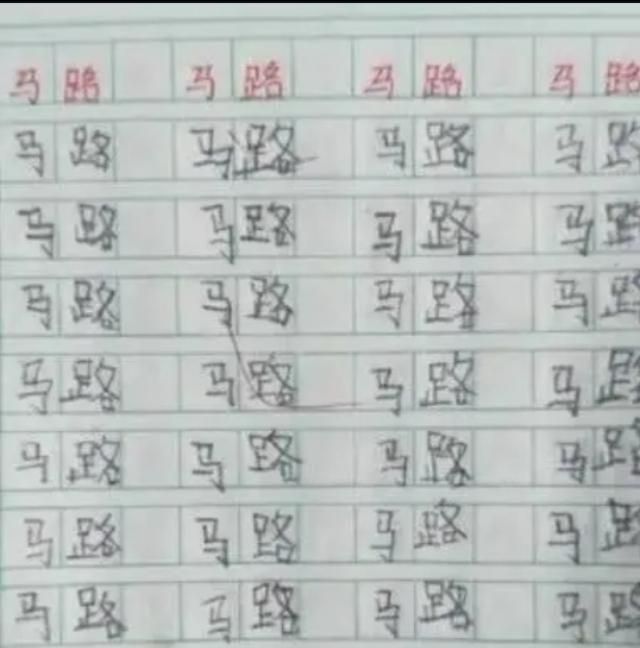 马路 马路 马路 马路
马路 马路 马路 马路
马路 马路 马路 马路
马路 马路 马路 马路
马路 马路 马路 马路
马路 马路 马路 马路
马路 马路 马路 马路
马路 马路 马路 马路